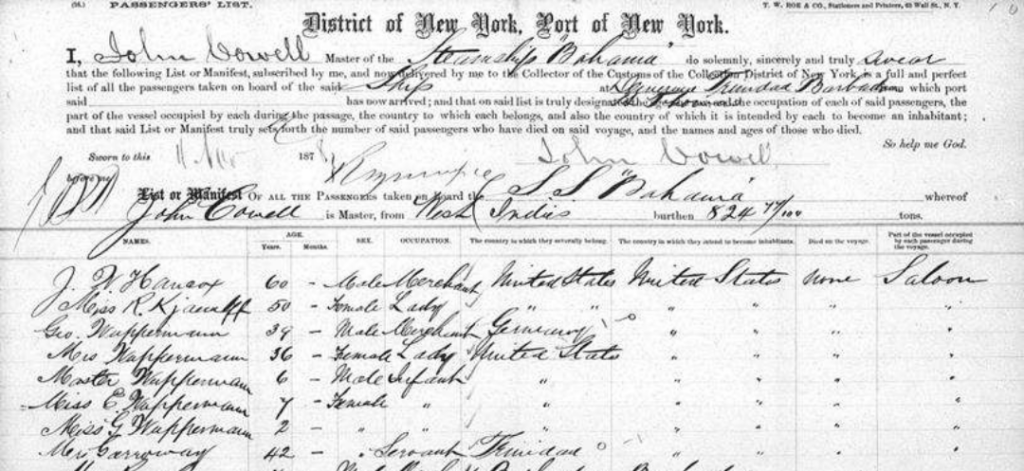 PASSENGERS' LIST.
T. W. ROE & CO., Stationers and Printers, 62 Wall St., N. Y.
District of New York, Port of New York.
I, John Cowell Master of the Steamship "Bahama" do solemnly, sincerely and truly swear
that the following List or Manifest, subscribed by me, and now delivered by me to the Collector of the Customs of the Collection District of New York is a full and perfect
list of all the passengers taken on board of the said Ship at Demerara Trinidad Barbados which port
said has now arrived; and that on said list is truly designated the and the occupation of each of said passengers, the
part of the vessel occupied by each during the passage, the country to which each belongs, and also the country of which it is intended by each to become an inhabitant;
and that said List or Manifest truly sets forth the number of said passengers who have died on said voyage, and the names and ages of those who died.
So help me God.
Sworn to this 11 Nov 187 John Cowell
before me
List or Manifest OF ALL THE PASSENGERS taken on Board the S.S. "Bahama" whereof
John Cowell is Master, from West Indies burthen 824 tons.
NAMES. AGE. Years. Months. SEX. OCCUPATION. The country to which they severally belong. The country in which they intend to become inhabitants. Died on the voyage. Part of the vessel occupied by each passenger during the voyage.
J. W. Hancox 60 - Male Merchant United States United States none Saloon
Miss R. 50 - Female Lady " " " " "
Geo. Wuppermann 39 - Male Merchant Germany " " "
Mrs Wuppermann 36 - Female Lady United States " " "
Master Wuppermann 6 - Male Infant " " " "
Miss E. Wuppermann 7 - Female " " " " "
Miss G. Wuppermann 2 - " " " " " "
Mrs Carroway 42 - " Servant Trinidad " " "